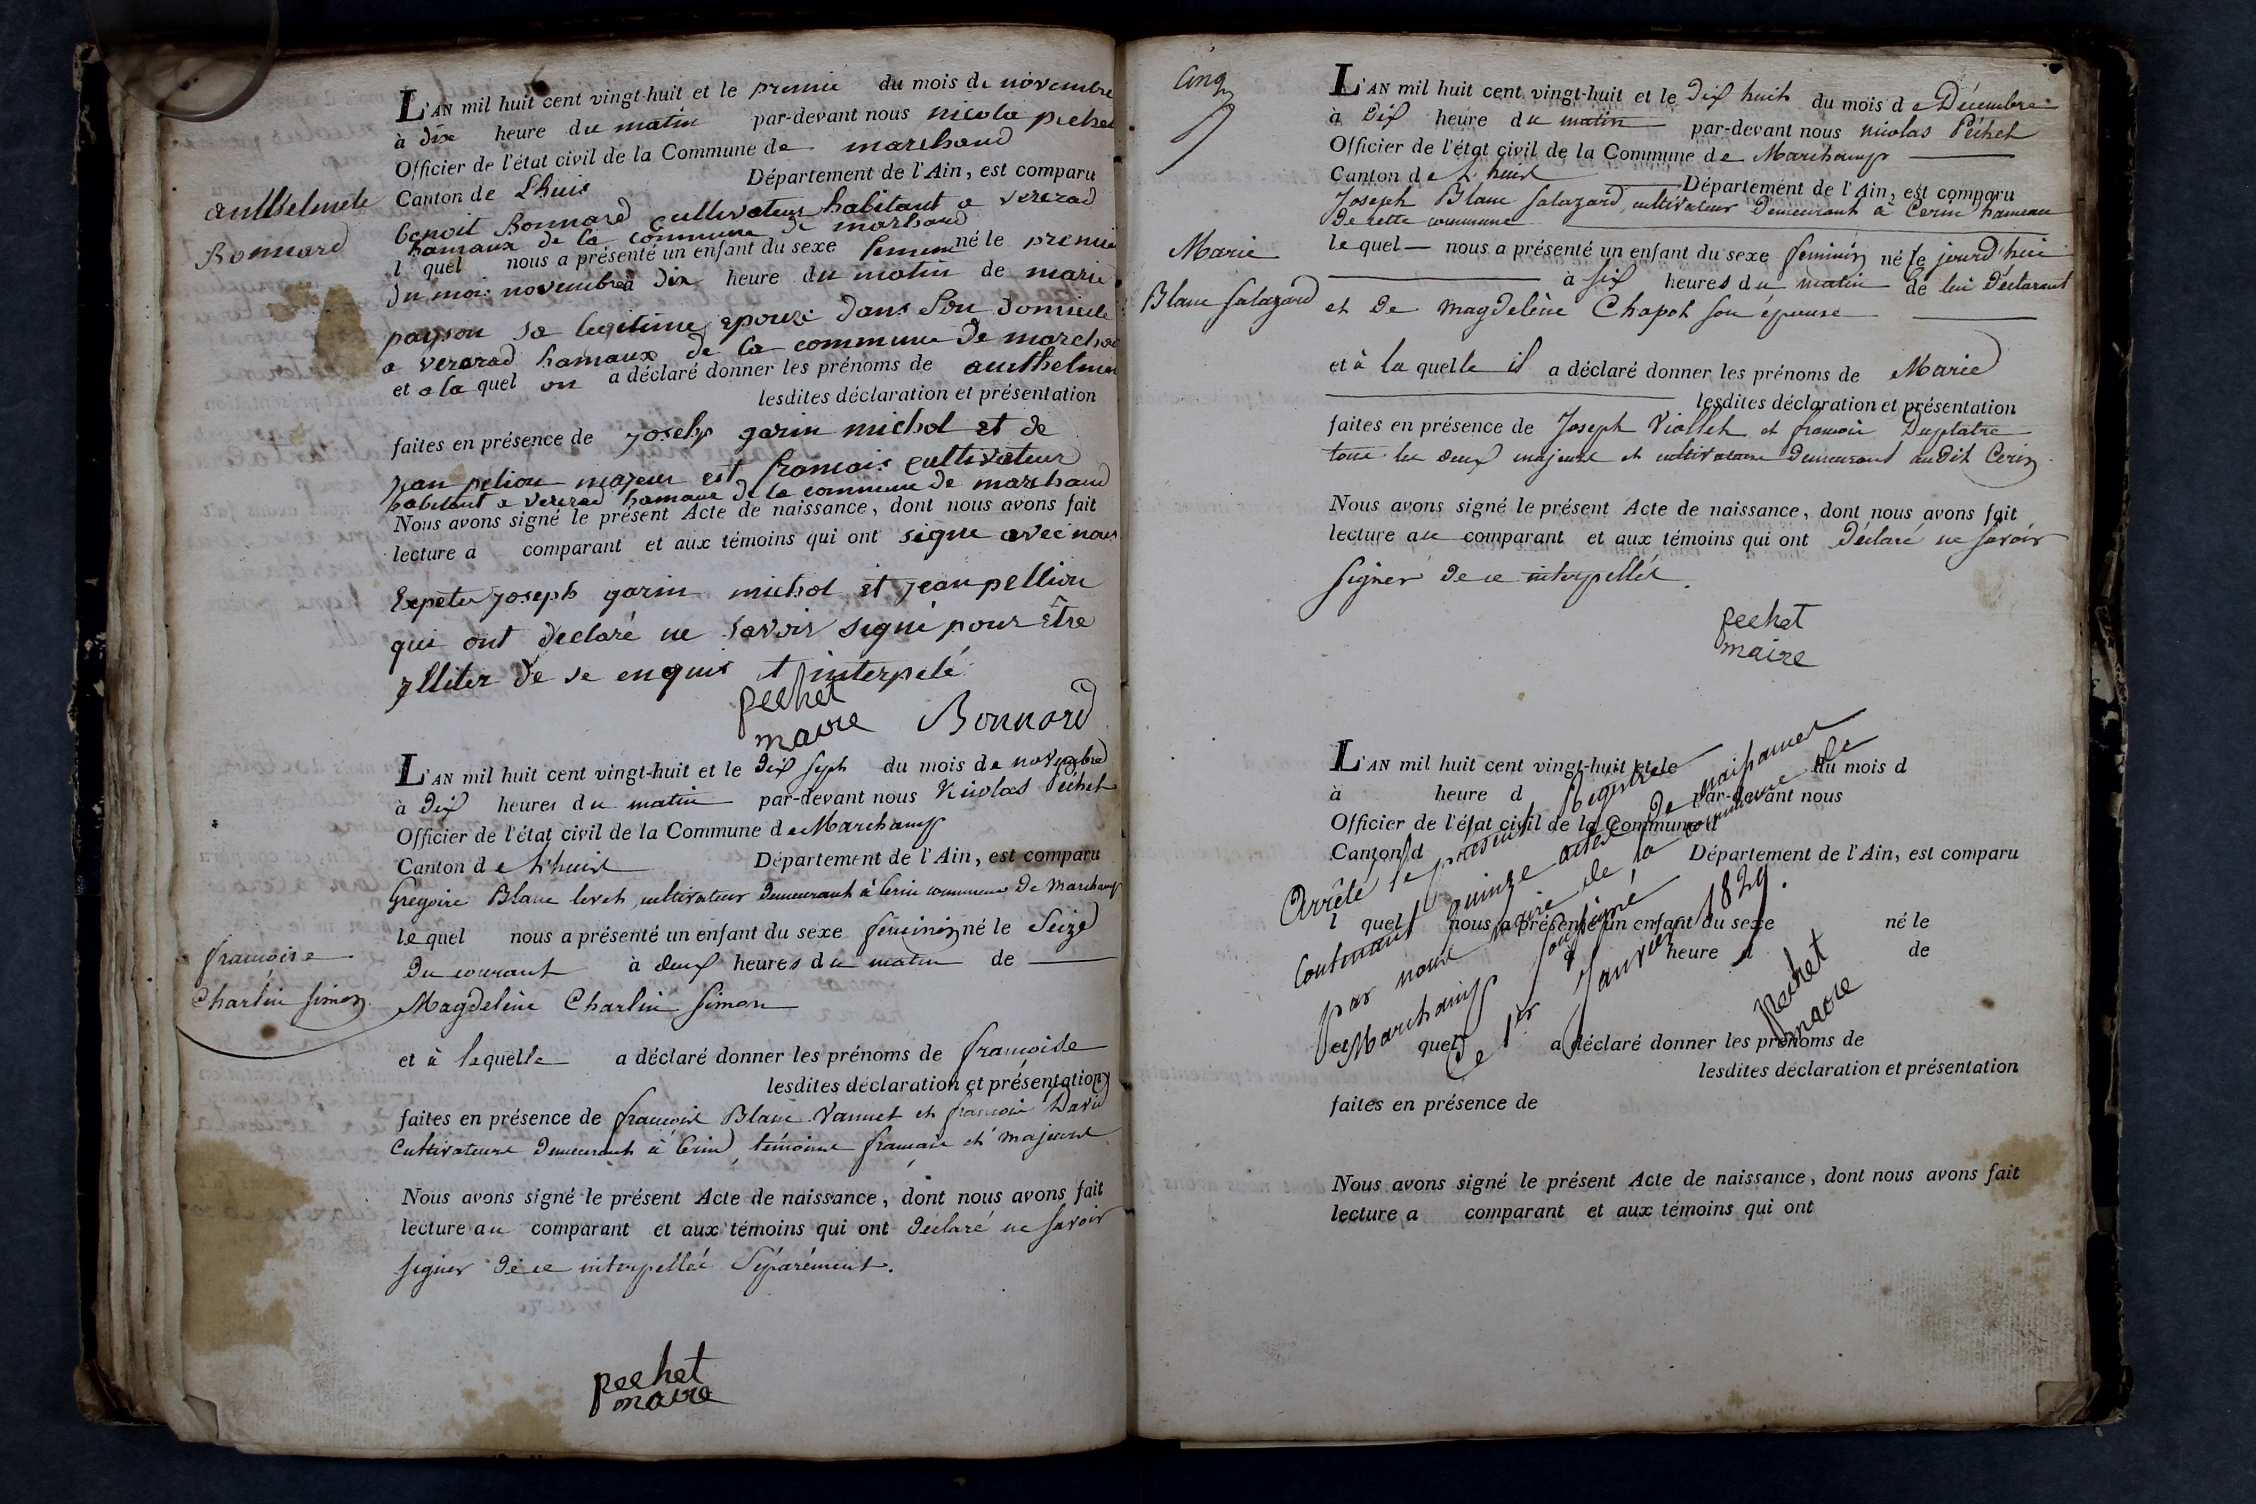 L'AN mil huit cent vingt-huit et le premie du mois de novembre
à dix heure du matin par-devant nous nicola pechet
Officier de l'état civil de la Commune de marchand
Canton de Lhuis Département de l'Ain, est comparu
benoit Bonnard cultivateur habitant a vererad
hamaux de la commune de marchand
l quel nous a présenté un enfant du sexe femenin né le premie
du mois novembre à dix heure du matin de marie
payson sa legitime epouze dans son domicile
a vererad hamaux de la commune de marchan
et a la quel on a déclaré donner les prénoms de anthelmete
lesdites déclaration et présentation
faites en présence de joseph garin michol et de
jean pelion majeur est francais cultivateur
habitant a vererad hamaux de la commune de marchand
Nous avons signé le présent Acte de naissance, dont nous avons fait
lecture a comparant et aux témoins qui ont signe avec nous
Expeter joseph garin michol et jean pellion
qui ont declaré ne savoir signé pour être
ylliter de se enquis et interpelé
pechet
maire Bonnard
anthelmete
Bonnard
L'AN mil huit cent vingt-huit et le dix sept du mois de novembre
à dix heures du matin par-devant nous Nicolas Péchet
Officier de l'état civil de la Commune de Marchamp
Canton de Lhuis Département de l'Ain, est comparu
Grégoire Blanc levet, cultivateur demeurant à Cerin commune de Marchamp
le quel nous a présenté un enfant du sexe feminin né le Seize
du courant à deux heures du matin de
Magdeleine Charlin Simon
et à laquelle a déclaré donner les prénoms de francoise
lesdites déclaration et présentation
faites en présence de francois Blanc Vannet et francois David
Cultivateurs demeurants à Cerin, témoins francais et majeurs
Nous avons signé le présent Acte de naissance, dont nous avons fait
lecture au comparant et aux témoins qui ont déclaré ne savoir
signer de ce interpellés Séparément.
pechet
maire
francoise
Charlin Simon
Cinq
L'AN mil huit cent vingt-huit et le dix huit du mois de Décembre
à Dix heure du matin par-devant nous nicolas Péchet
Officier de l'état civil de la Commune de Marchamp
Canton de Lhuis Département de l'Ain, est comparu
Joseph Blanc Salazard, cultivateur demeurant à Cerin hameau
de cette commune
le quel nous a présenté un enfant du sexe feminin né le jourd'hui
à six heures du matin de lui déclarant
et de Magdeleine Chapot son épouse
et à la quelle il a déclaré donner les prénoms de Marie
lesdites déclaration et présentation
faites en présence de Joseph Viollet et francois Duplatre
tous les deux majeurs et cultivateurs demeurant audit Cerin
Nous avons signé le présent Acte de naissance, dont nous avons fait
lecture au comparant et aux témoins qui ont Déclaré ne savoir
signer de ce interpellés.
pechet
maire
Marie
Blanc Salazard
L'AN mil huit cent vingt-huit et le du mois d
à heure d par-devant nous
Officier de l'état civil de la Commune d
Canton d Département de l'Ain, est comparu
l quel nous a présenté un enfant du sexe né le
à heure d de
et quel a déclaré donner les prénoms de
lesdites déclaration et présentation
faites en présence de
Nous avons signé le présent Acte de naissance, dont nous avons fait
lecture a comparant et aux témoins qui ont
Arrêté le présent Registre
Contenant quinze actes de naissances
par nous maire de la commune de
Marchamp soussigné
Ce 1er Janvier 1829.
pechet
maire